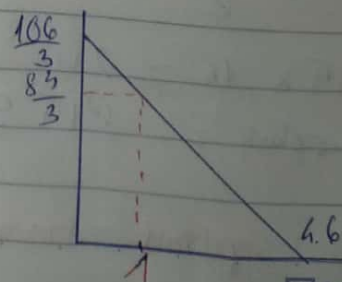 106
3
83
3
4.6
1